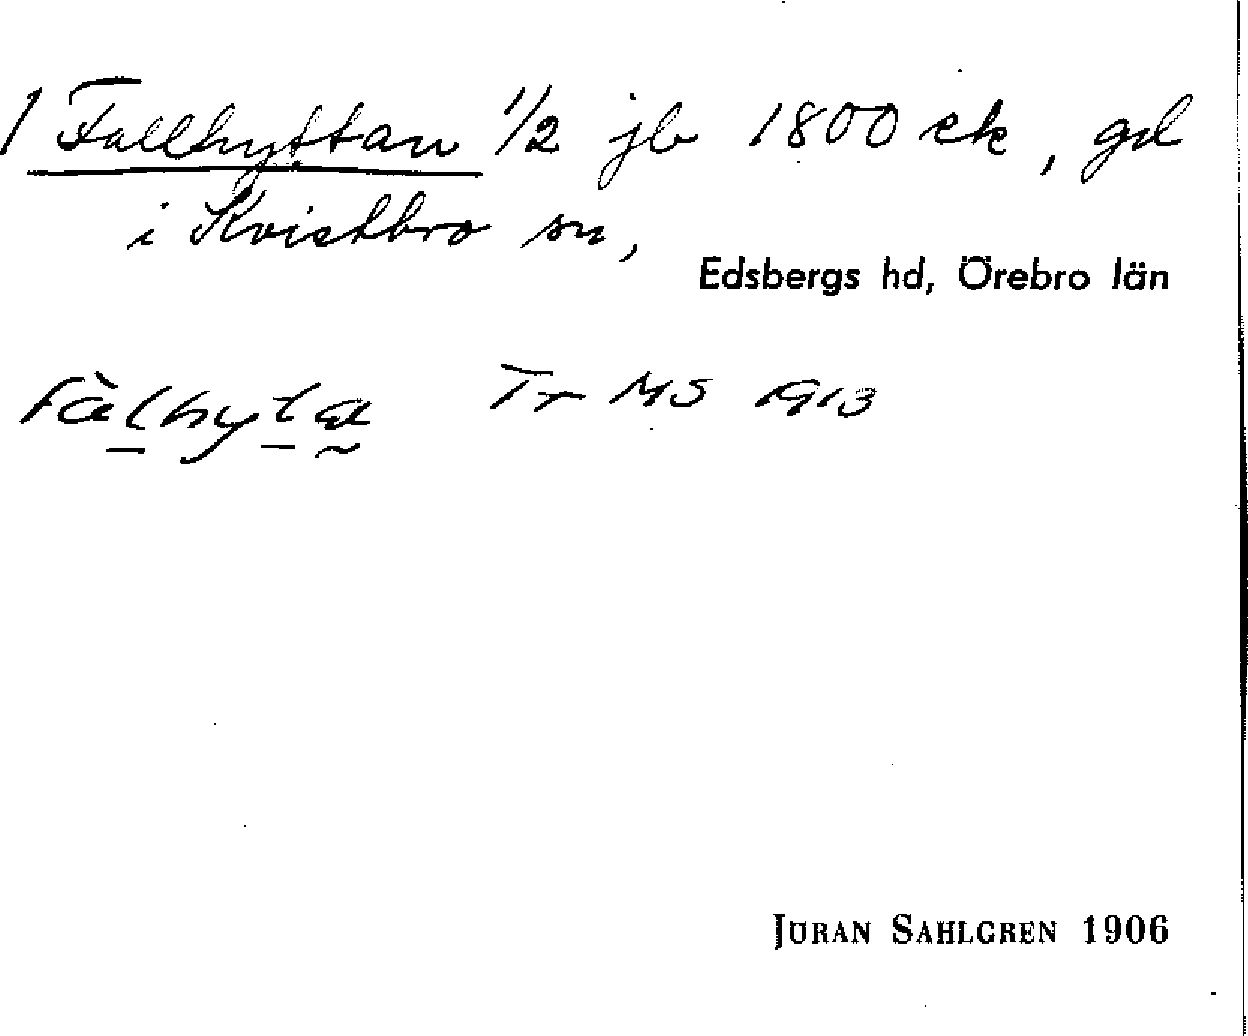 1 Fallhyttan 1/2 jb 1800 ek, gd
i Kvistbro sn,
Edsbergs hd, Örebro län
fàlhyta Tr MS 1913
JÖRAN SAHLGREN 1906